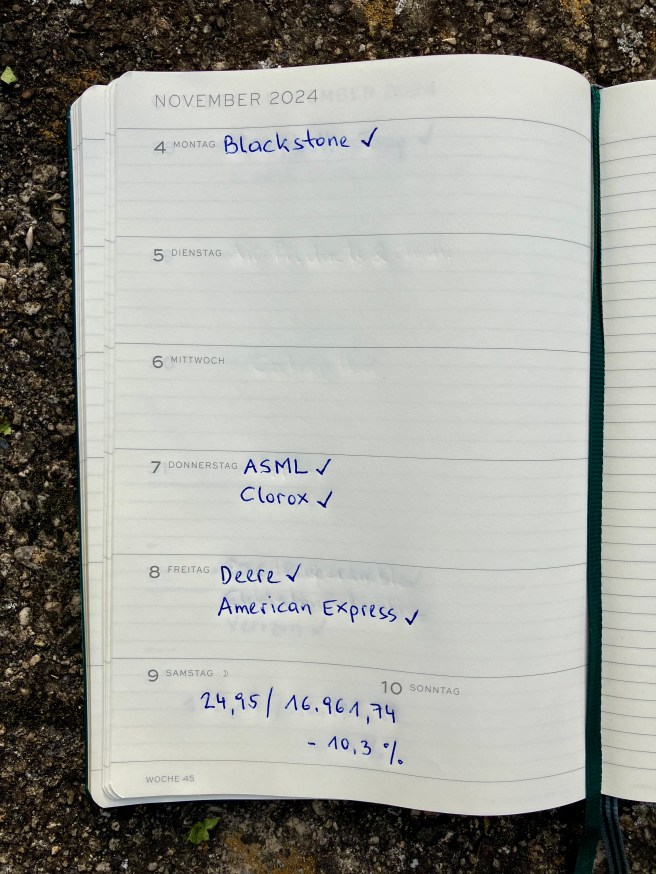 NOVEMBER 2024
4 MONTAG Blackstone ✓
5 DIENSTAG
6 MITTWOCH
7 DONNERSTAG ASML ✓
Clorox ✓
8 FREITAG Deere ✓
American Express ✓
9 SAMSTAG ☽
10 SONNTAG
24,95/ 16.961,74
- 10,3 %
WOCHE 45